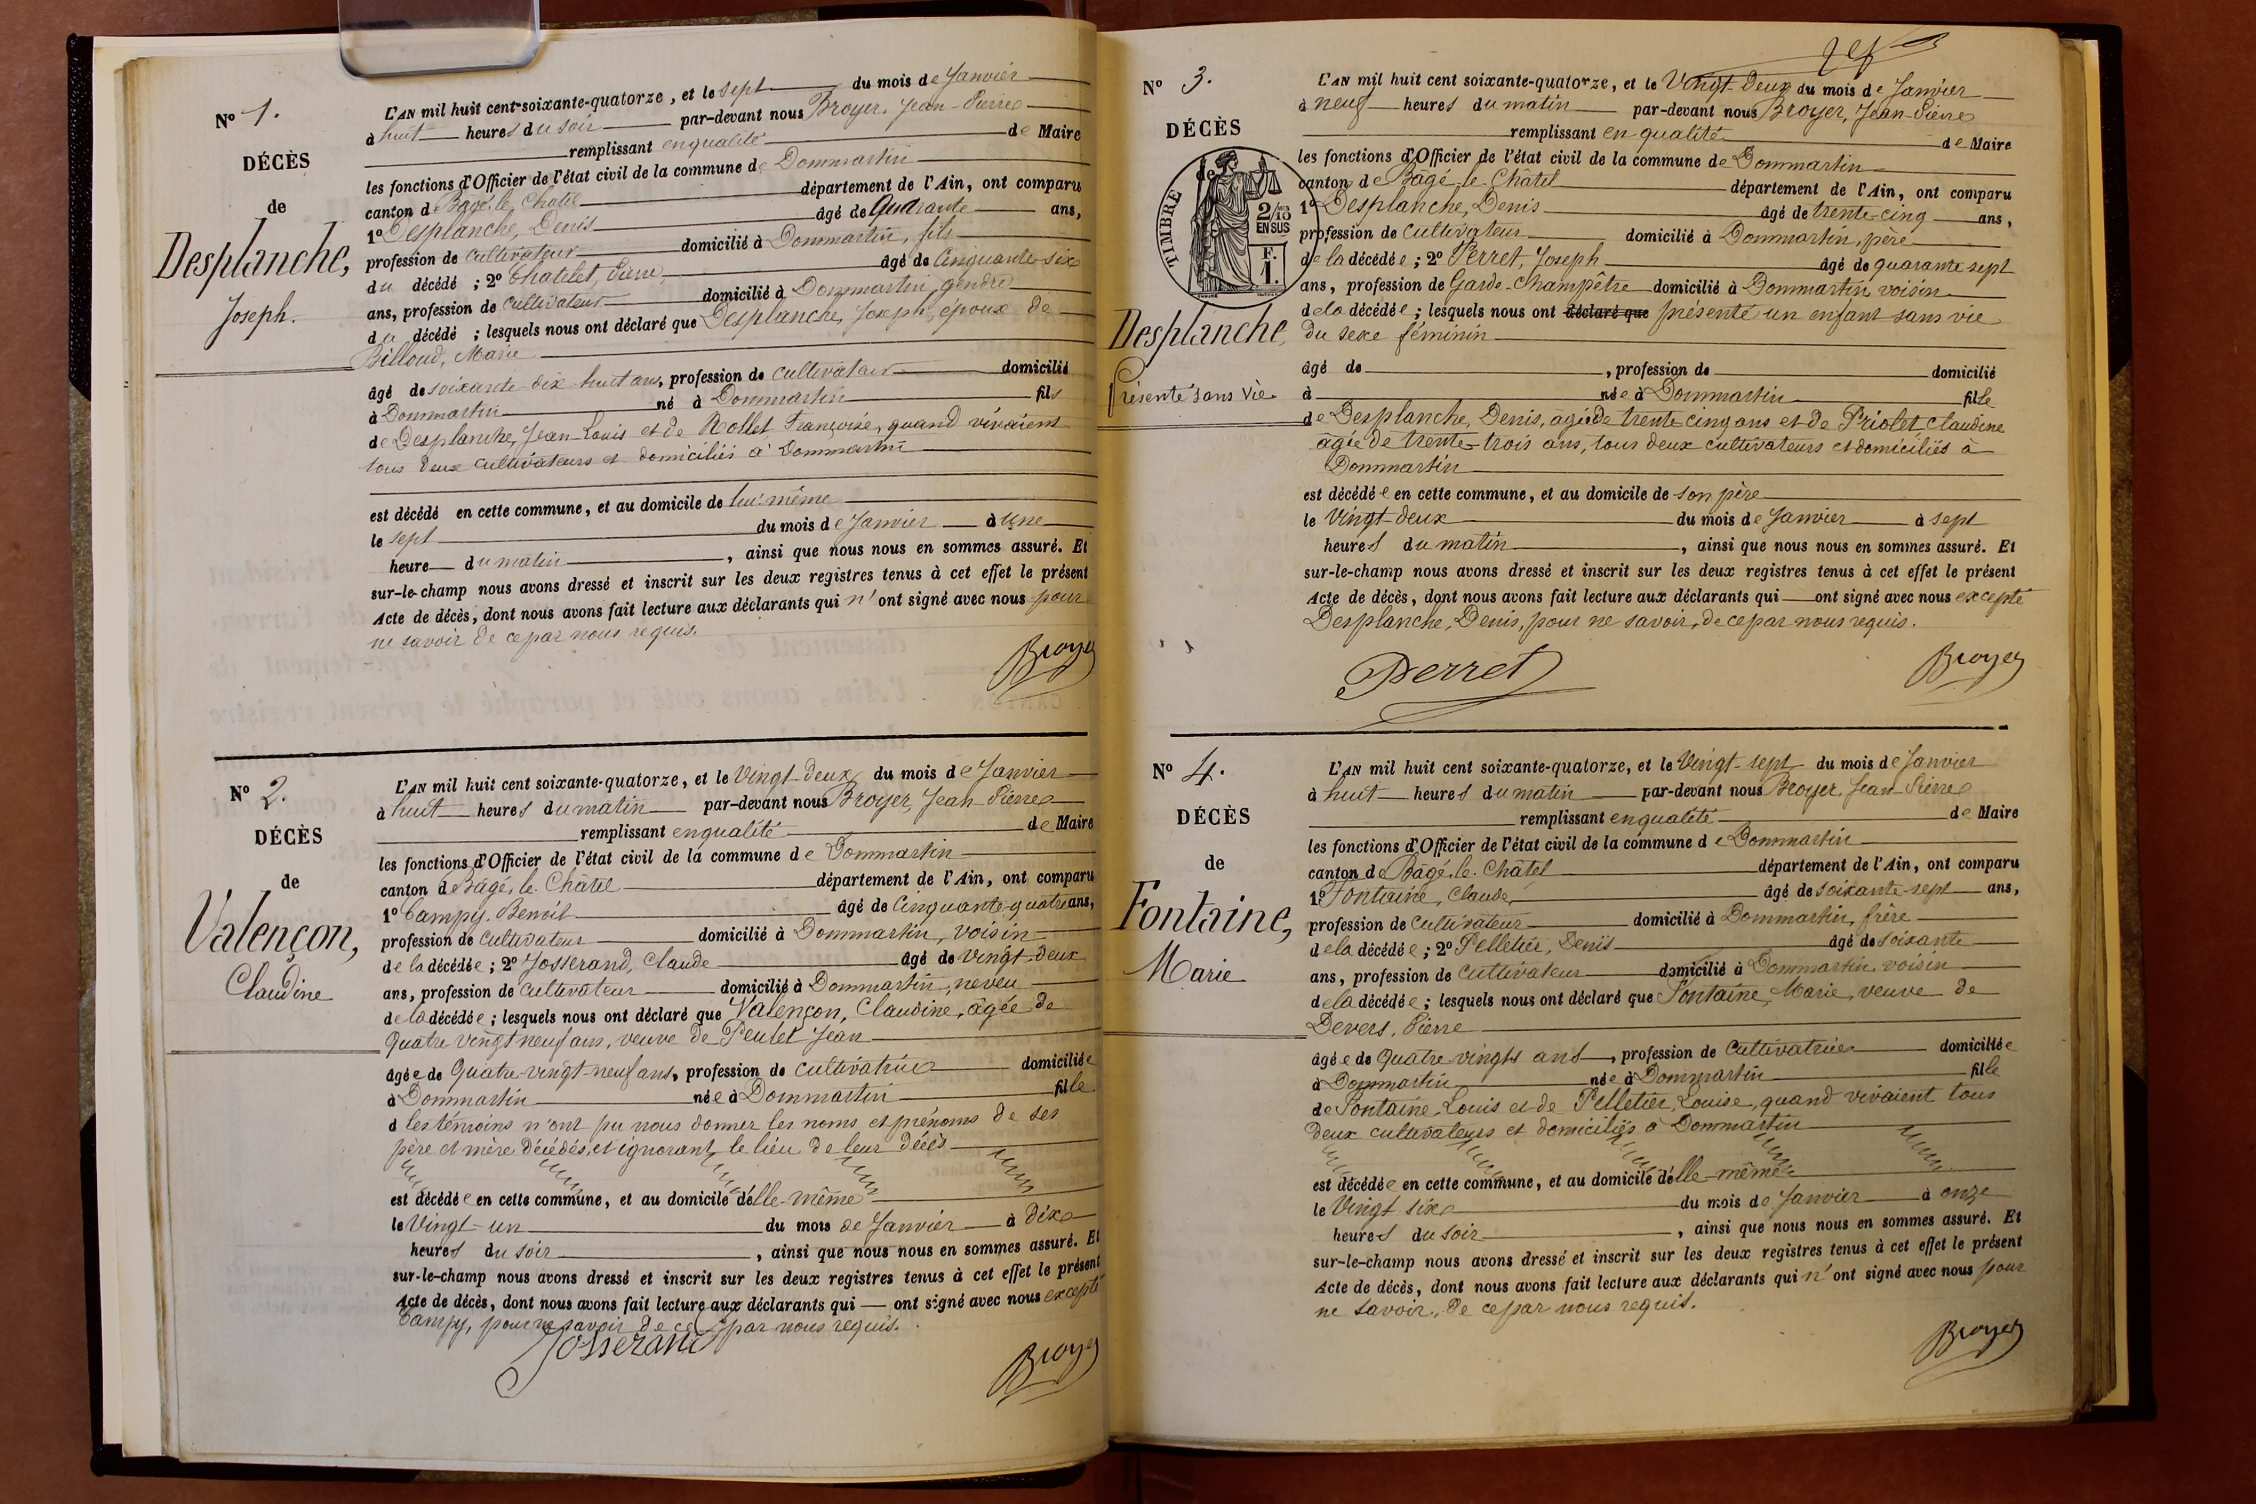 N° 1.
DÉCÈS
de
Desplanche,
Joseph.
L'AN mil huit cent soixante-quatorze, et le sept du mois de Janvier
à huit heures du soir par-devant nous Broyer, Jean-Pierre
remplissant en qualité de Maire
les fonctions d'Officier de l'état civil de la commune de Dommartin
canton de Bâgé-le-Châtel département de l'Ain, ont comparu
1° Desplanche, Denis âgé de Quarante ans,
profession de cultivateur domicilié à Dommartin, fils
du décédé ; 2° Chatelet, Pierre, âgé de Cinquante-six
ans, profession de cultivateur domicilié à Dommartin, gendre
du décédé ; lesquels nous ont déclaré que Desplanche, Joseph, époux de
Billoud, Marie
âgé de soixante-dix-huit ans, profession de cultivateur domicilié
à Dommartin né à Dommartin fils
de Desplanche, Jean-Louis et de Rollet Françoise, quand vivaient
tous deux cultivateurs et domiciliés à Dommartin
est décédé en cette commune, et au domicile de lui-même
le sept du mois de Janvier à une
heure du matin , ainsi que nous nous en sommes assuré. Et
sur-le-champ nous avons dressé et inscrit sur les deux registres tenus à cet effet le présent
Acte de décès, dont nous avons fait lecture aux déclarants qui n'ont signé avec nous pour
ne savoir de ce par nous requis.
Broyer
N° 2.
DÉCÈS
de
Valençon,
Claudine
L'AN mil huit cent soixante-quatorze, et le Vingt-deux du mois de Janvier
à huit heures du matin par-devant nous Broyer, Jean-Pierre
remplissant en qualité de Maire
les fonctions d'Officier de l'état civil de la commune de Dommartin
canton de Bâgé-le-Châtel département de l'Ain, ont comparu
1° Campy, Benoît âgé de Cinquante-quatre ans,
profession de cultivateur domicilié à Dommartin, voisin
de la décédée ; 2° Josserand, Claude âgé de vingt-deux
ans, profession de cultivateur domicilié à Dommartin, neveu
de la décédée ; lesquels nous ont déclaré que Valençon, Claudine, âgée de
Quatre vingt neuf ans, veuve de Peulet Jean
âgée de Quatre-vingt-neuf ans, profession de cultivatrice domiciliée
à Dommartin née à Dommartin fille
d les témoins n'ont pu nous donner les noms et prénoms de ses
père et mère décédés, et ignorant le lieu de leur décès
est décédée en cette commune, et au domicile d'elle-même
le Vingt-un du mois de Janvier à dix
heures du soir , ainsi que nous nous en sommes assuré. Et
sur-le-champ nous avons dressé et inscrit sur les deux registres tenus à cet effet le présent
Acte de décès, dont nous avons fait lecture aux déclarants qui ont signé avec nous excepté
Campy, pour ne savoir de ce par nous requis.
Josserand
Broyer
N° 3.
DÉCÈS
de
TIMBRE
2/10
EN SUS
F.
1.
Desplanche,
Présenté sans vie
L'AN mil huit cent soixante-quatorze, et le Vingt-deux du mois de Janvier
à neuf heures du matin par-devant nous Broyer, Jean-Pierre
remplissant en qualité de Maire
les fonctions d'Officier de l'état civil de la commune de Dommartin
canton de Bâgé-le-Châtel département de l'Ain, ont comparu
1° Desplanche, Denis âgé de trente-cinq ans,
profession de cultivateur domicilié à Dommartin, père
de la décédée ; 2° Perret, Joseph âgé de quarante sept
ans, profession de Garde-Champêtre domicilié à Dommartin voisin
de la décédée ; lesquels nous ont déclaré que présenté un enfant sans vie
du sexe féminin
âgé de , profession de domicilié
à née à Dommartin fille
de Desplanche, Denis, âgé de trente cinq ans et de Priolet Claudine
âgée de trente-trois ans, tous deux cultivateurs et domiciliés à
Dommartin
est décédée en cette commune, et au domicile de son père
le Vingt-deux du mois de Janvier à sept
heures du matin , ainsi que nous nous en sommes assuré. Et
sur-le-champ nous avons dressé et inscrit sur les deux registres tenus à cet effet le présent
Acte de décès, dont nous avons fait lecture aux déclarants qui ont signé avec nous excepté
Desplanche, Denis, pour ne savoir, de ce par nous requis.
Perret
Broyer
N° 4.
DÉCÈS
de
Fontaine,
Marie
L'AN mil huit cent soixante-quatorze, et le Vingt-sept du mois de Janvier
à huit heures du matin par-devant nous Broyer, Jean Pierre
remplissant en qualité de Maire
les fonctions d'Officier de l'état civil de la commune de Dommartin
canton de Bâgé-le-Châtel département de l'Ain, ont comparu
1° Fontaine, Claude, âgé de soixante-sept ans,
profession de cultivateur domicilié à Dommartin, frère
de la décédée ; 2° Pelletier, Denis âgé de soixante
ans, profession de cultivateur domicilié à Dommartin voisin
de la décédée ; lesquels nous ont déclaré que Fontaine, Marie, veuve de
Devers, Pierre
âgée de Quatre vingts ans, profession de Cultivatrice domiciliée
à Dommartin née à Dommartin fille
de Fontaine, Louis et de Pelletier, Louise, quand vivaient tous
deux cultivateurs et domiciliés à Dommartin
est décédée en cette commune, et au domicile d'elle-même
le Vingt six du mois de Janvier à onze
heures du soir , ainsi que nous nous en sommes assuré. Et
sur-le-champ nous avons dressé et inscrit sur les deux registres tenus à cet effet le présent
Acte de décès, dont nous avons fait lecture aux déclarants qui n'ont signé avec nous pour
ne savoir, de ce par nous requis.
Broyer